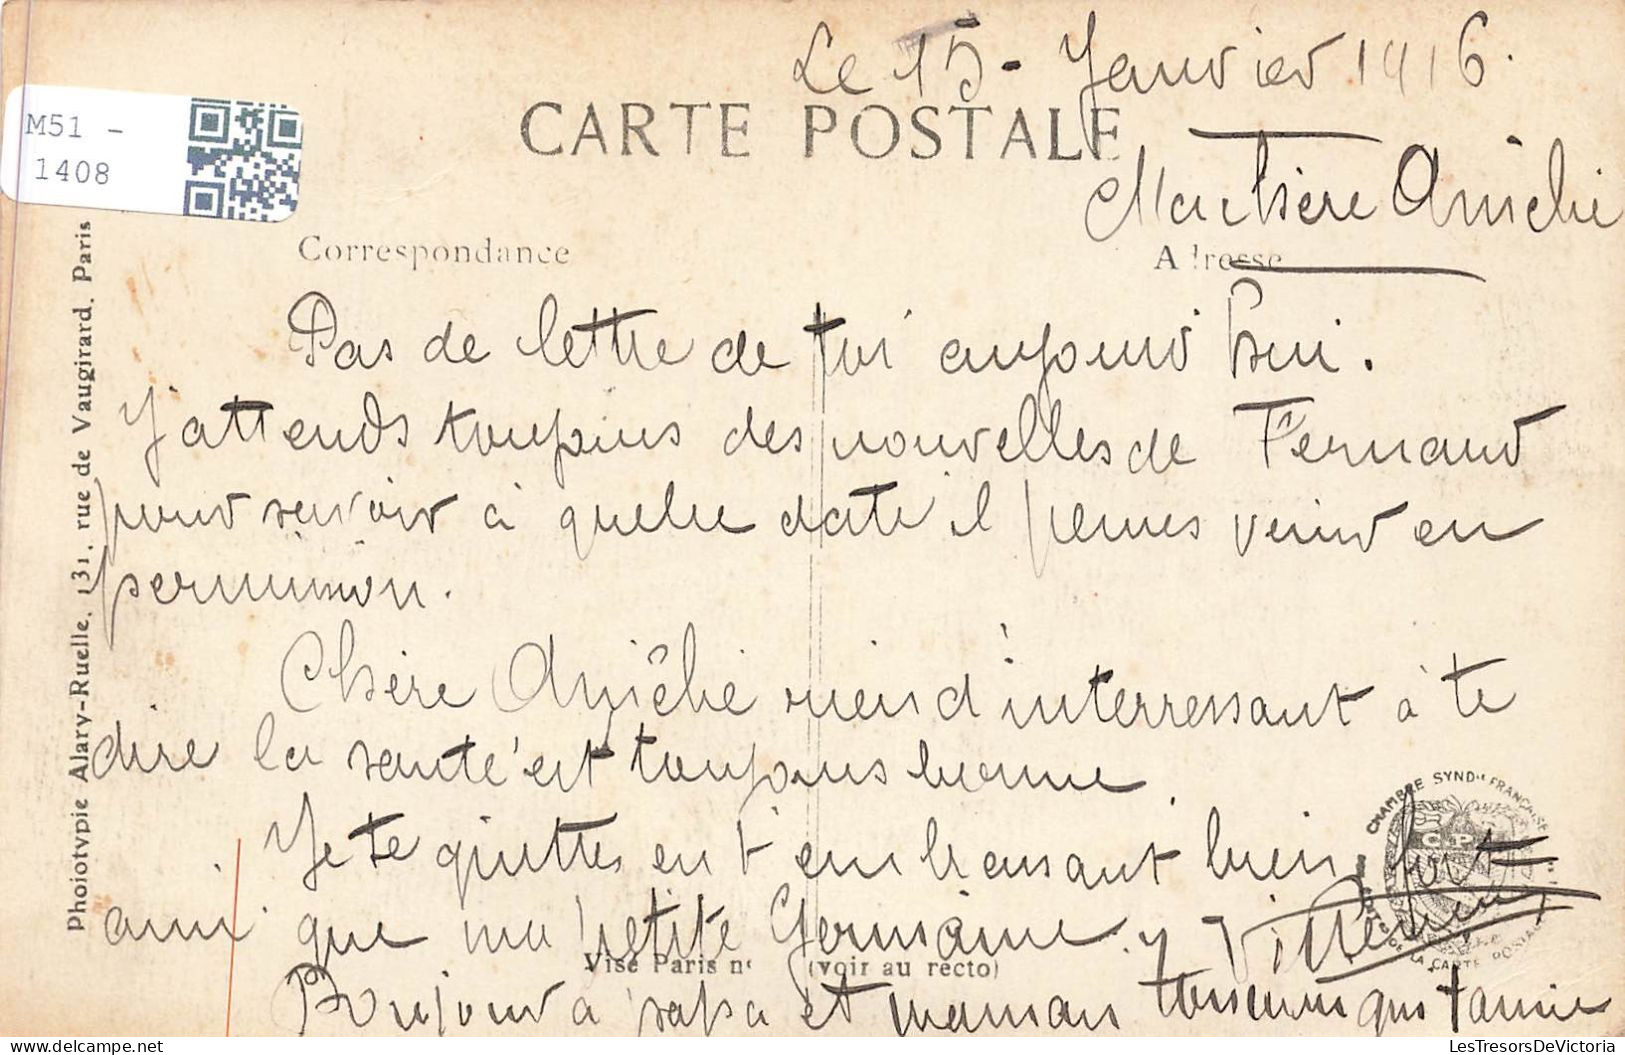 Le 15 - Janvier 1916.
M51 -
1408
CARTE POSTALE
Ma chère Anièlie
Correspondance
Adresse
Pas de lettre de toi aujourd'hui.
J'attends toujours des nouvelles de Fernand
pour savoir à quelle date il penses venir en
permission.
Chère Anièlie rien d'interressant à te
dire la santé est toujours bonne
Je te quittes en t'embrassant bien fort
ainsi que ma petite Germaine.
Visé Paris n° (voir au recto)
Bonjour à papa et maman
Phototypie Alary-Ruelle, 131, rue de Vaugirard, Paris
CHAMBRE SYNDle FRANÇAISE
DE LA CARTE POSTALE
LesTresorsDeVictoria